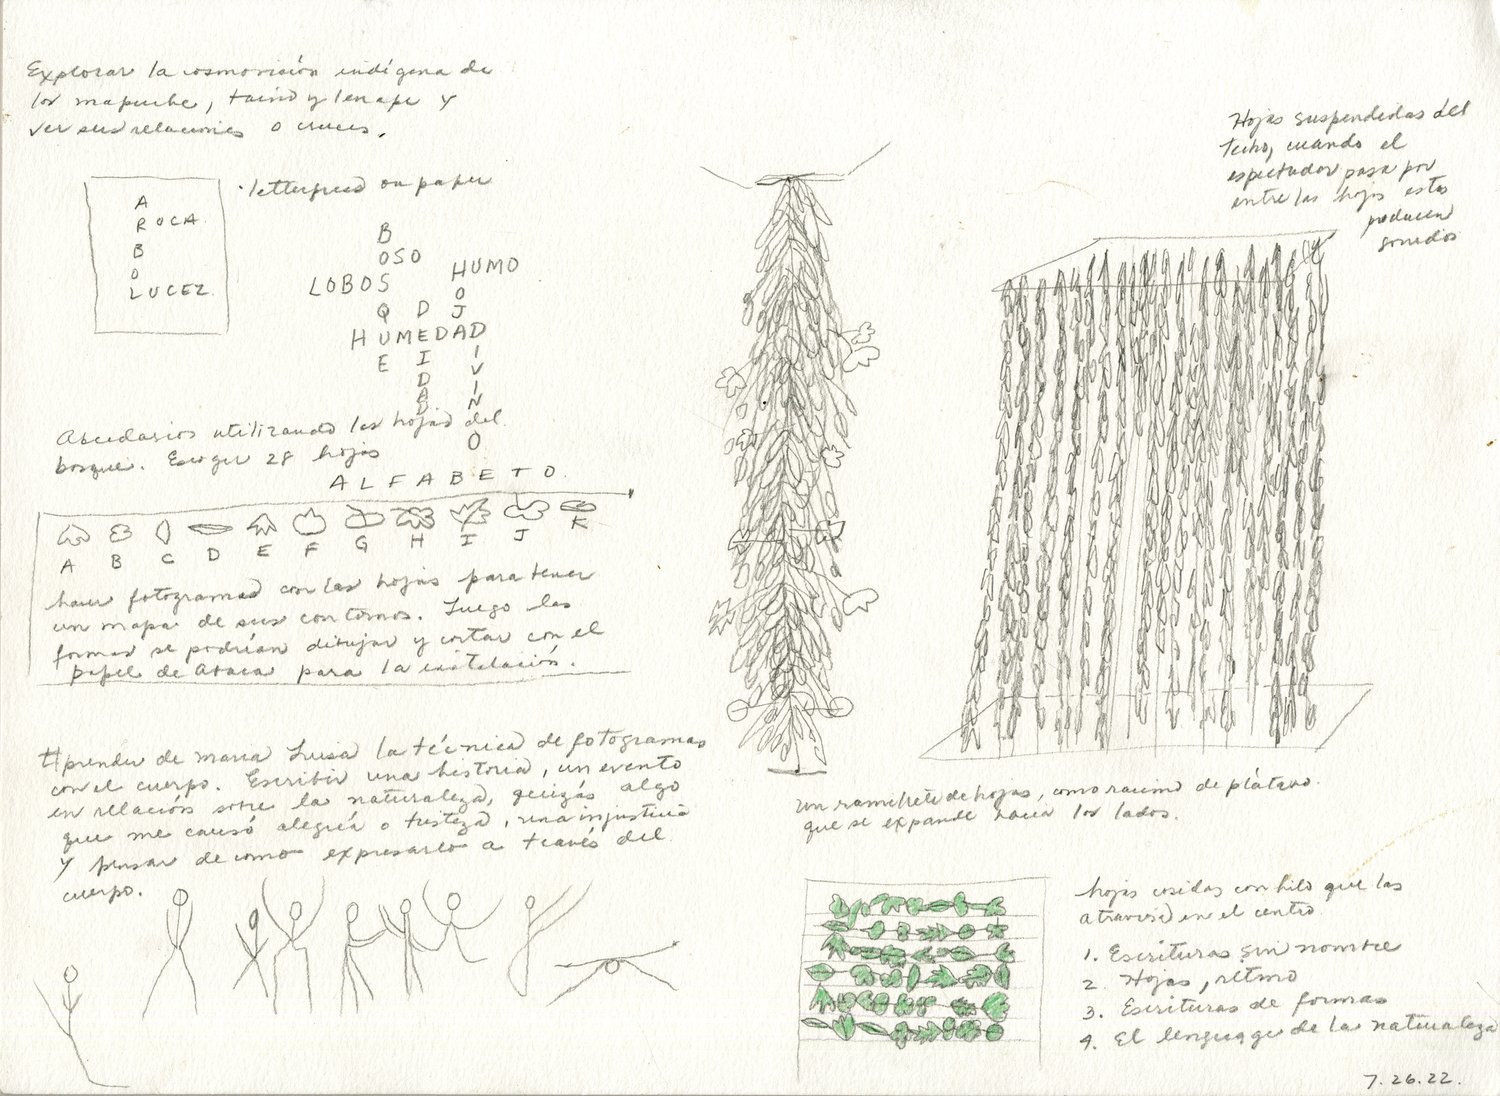 Explorar la cosmovisión indígena de
los mapuche, taino y lenape y
ver sus relaciones o cruces.
Hojas suspendidas del
techo, cuando el
espectador pasa por
entre las hojas estas
producen
sonidos
· letterpress on paper
A
R O C A
B
O
L U C E Z
B
OSO
HUMO
LOBOS
O
Q D J
HUMEDAD
E I I
D V
A I
D N
O
Abecedarios utilizando las hojas del
bosque. Escoger 28 hojas
A L F A B E T O.
A B C D E F G H I J K
hacer fotogramas con las hojas para tener
un mapa de sus contornos. Luego las
formas se podrían dibujar y cortar con el
papel de para la instalación.
Aprender de Maria Luisa la técnica de fotogramas
con el cuerpo. Escribir una historia, un evento
en relación sobre la naturaleza, quizás algo
que me causó alegría o tristeza, una injusticia
y pensar de como expresarlo a través del
cuerpo.
un ramillete de hojas, como racimo de plátano
que se expande hacia los lados.
hojas cosidas con hilo que las
atraviesa en el centro
1. Escrituras sin nombre
2. Hojas, ritmo
3. Escrituras de formas
4. El lenguage de la naturaleza
7.26.22.